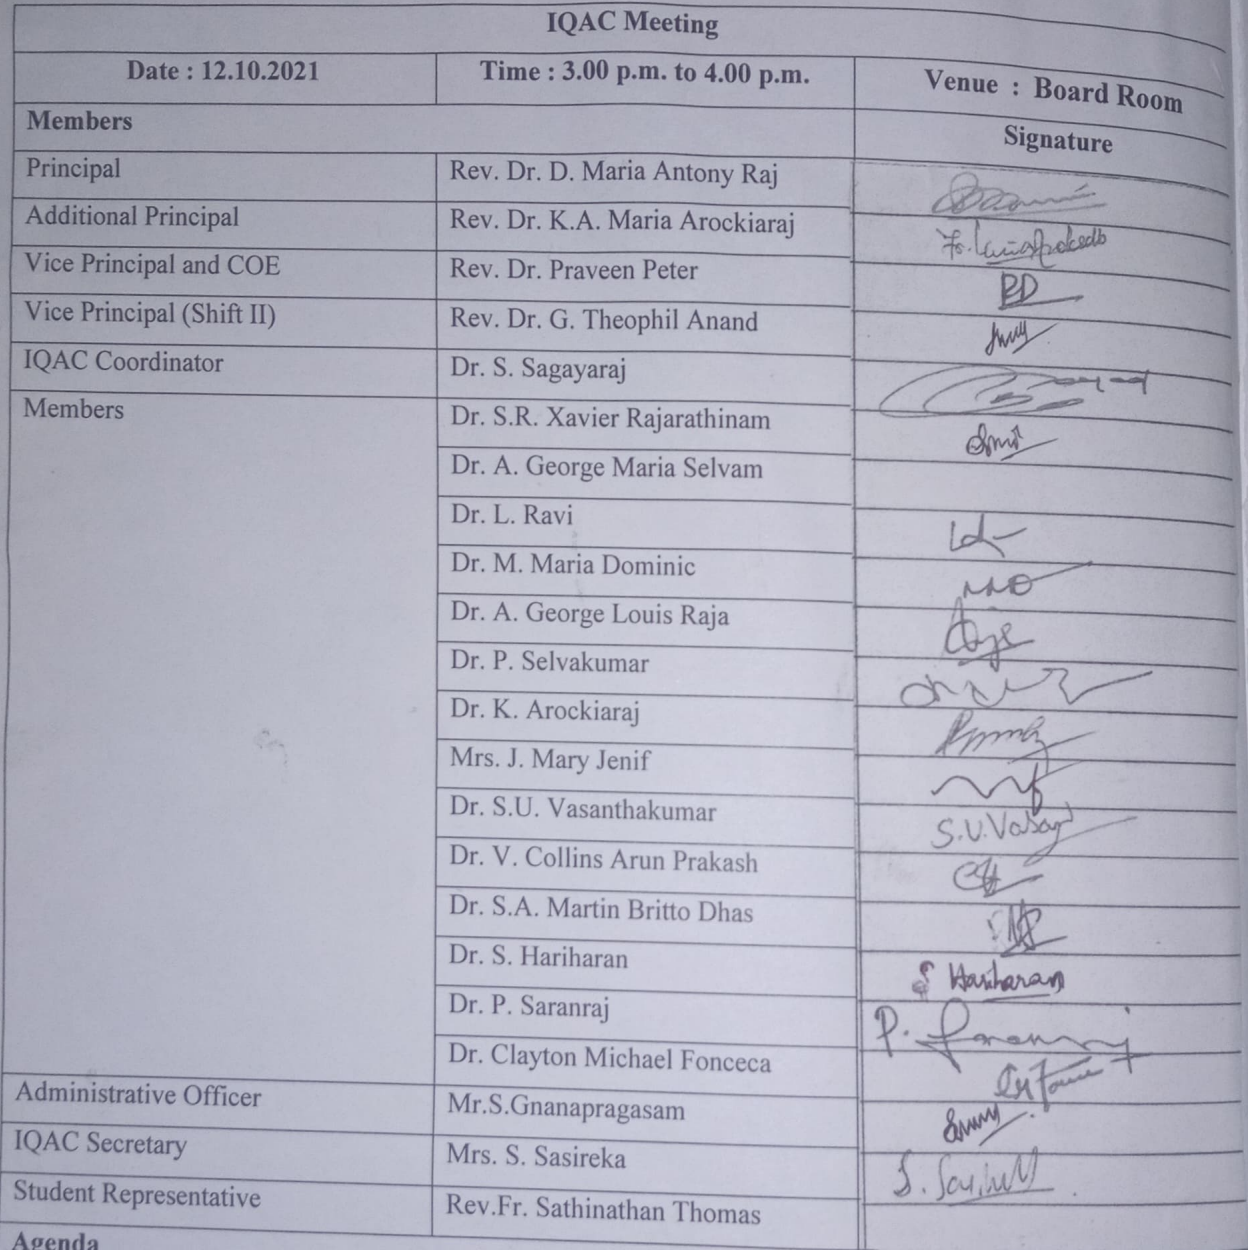 IQAC Meeting
Date : 12.10.2021 Time : 3.00 p.m. to 4.00 p.m. Venue : Board Room
Members Signature
Principal Rev. Dr. D. Maria Antony Raj
Additional Principal Rev. Dr. K.A. Maria Arockiaraj
Vice Principal and COE Rev. Dr. Praveen Peter
Vice Principal (Shift II) Rev. Dr. G. Theophil Anand
IQAC Coordinator Dr. S. Sagayaraj
Members Dr. S.R. Xavier Rajarathinam
Dr. A. George Maria Selvam
Dr. L. Ravi
Dr. M. Maria Dominic
Dr. A. George Louis Raja
Dr. P. Selvakumar
Dr. K. Arockiaraj
Mrs. J. Mary Jenif
Dr. S.U. Vasanthakumar S.U.Vasan
Dr. V. Collins Arun Prakash
Dr. S.A. Martin Britto Dhas
Dr. S. Hariharan S Hariharan
Dr. P. Saranraj P.
Dr. Clayton Michael Fonceca
Administrative Officer Mr.S.Gnanapragasam
IQAC Secretary Mrs. S. Sasireka S.
Student Representative Rev.Fr. Sathinathan Thomas
Agenda